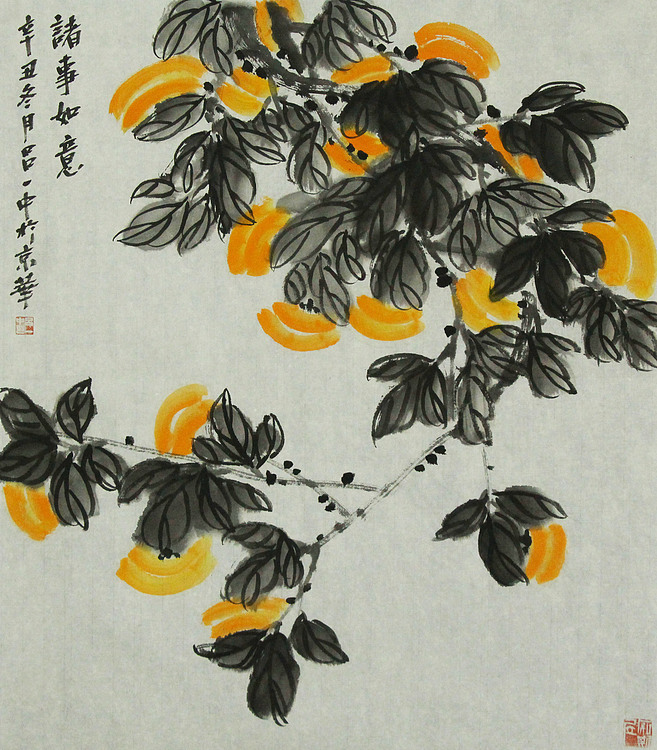 諸事如意
辛丑冬月吕一中於京華